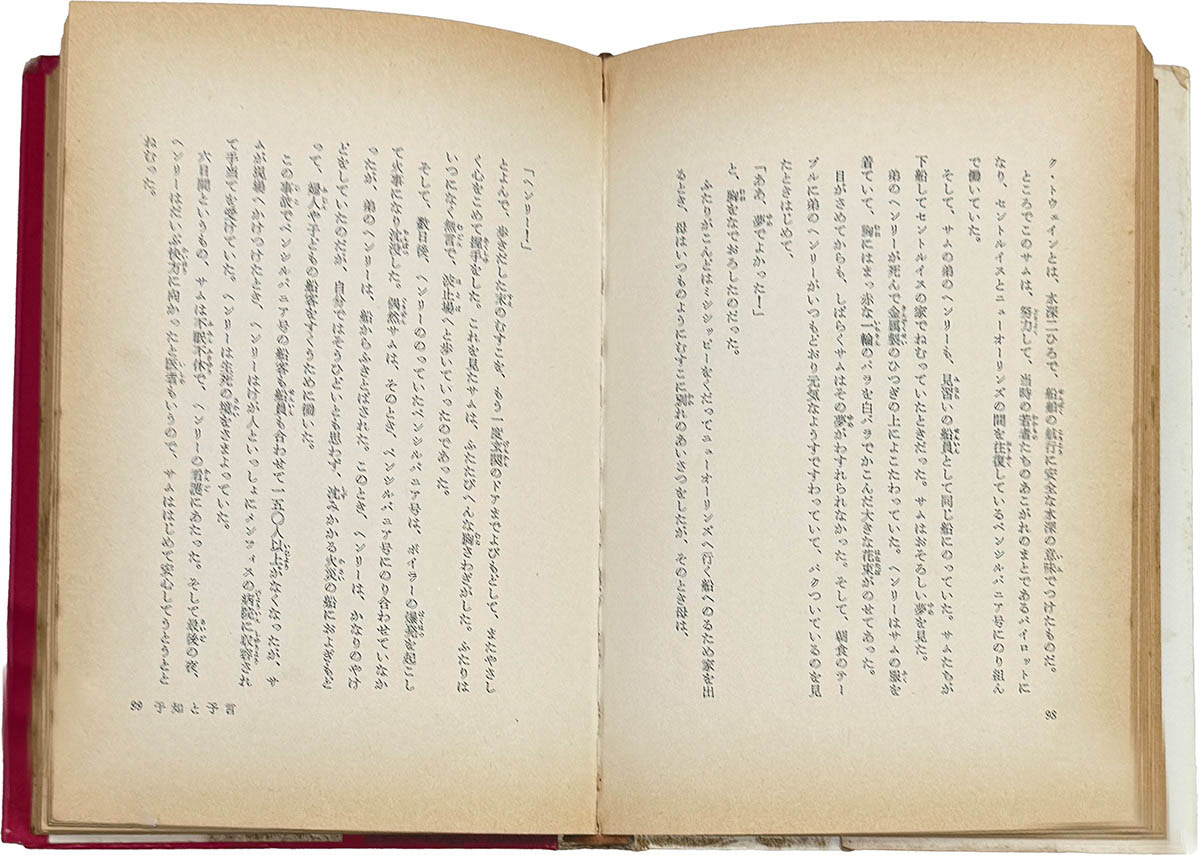 ク・トウェインとは、水深二ひろで、船舶の航行に安全な水深の意味でつけたものだ。
ところでこのサムは、努力して、当時の若者たちのあこがれのまとであるパイロットに
なり、セントルイスとニューオーリンズの間を往復しているペンシルバニア号にのり組ん
で働いていた。
そして、サムの弟のヘンリーも、見習いの船員として同じ船にのっていた。サムたちが
下船してセントルイスの家でねむっていたときだった。サムはおそろしい夢を見た。
弟のヘンリーが死んで金属製のひつぎの上によこたわっていた。ヘンリーはサムの服を
着ていて、胸にはまっ赤な一輪のバラを白バラでかこんだ大きな花束がのせてあった。
目がさめてからも、しばらくサムはその夢がわすれられなかった。そして、朝食のテー
ブルに弟のヘンリーがいつもどおり元気なようすですわっていて、パクついているのを見
たときはじめて、
「ああ、夢でよかった！」
と、胸をなでおろしたのだった。
ふたりがこんどはミシシッピーをくだってニューオーリンズへ行く船へのるため家を出
るとき、母はいつものようにむすこに別れのあいさつをしたが、そのとき母は、
98
「ヘンリー！」
とよんで、歩きだした末のむすこを、もう一度玄関のドアまでよびもどして、またやさし
く心をこめて握手をした。これを見たサムは、ふたたびへんな胸さわぎがした。ふたりは
いつになく無言で、波止場へと歩いていったのであった。
そして、数日後、ヘンリーののっていたペンシルバニア号は、ボイラーの爆発を起こし
て火事になり沈没した。偶然サムは、そのとき、ペンシルバニア号にのり合わせていなか
ったが、弟のヘンリーは、船からふきとばされた。このとき、ヘンリーは、かなりのやけ
どをしていたのだが、自分ではそうひどいとも思わず、沈みかかる火災の船におよぎもど
って、婦人や子どもの船客をすくうために働いた。
この事故でペンシルバニア号の船客も船員も合わせて一五〇人以上がなくなったが、サ
ムが現場へかけつけたとき、ヘンリーはけが人といっしょにメンフィスの病院に収容され
て手当てを受けていた。ヘンリーは生死の境をさまよっていた。
六日間というもの、サムは不眠不休で、ヘンリーの看護にあたった。そして最後の夜、
ヘンリーはだいぶ快方に向かったと医者もいうので、サムははじめて安心してうとうとと
ねむった。
99 予知と予言